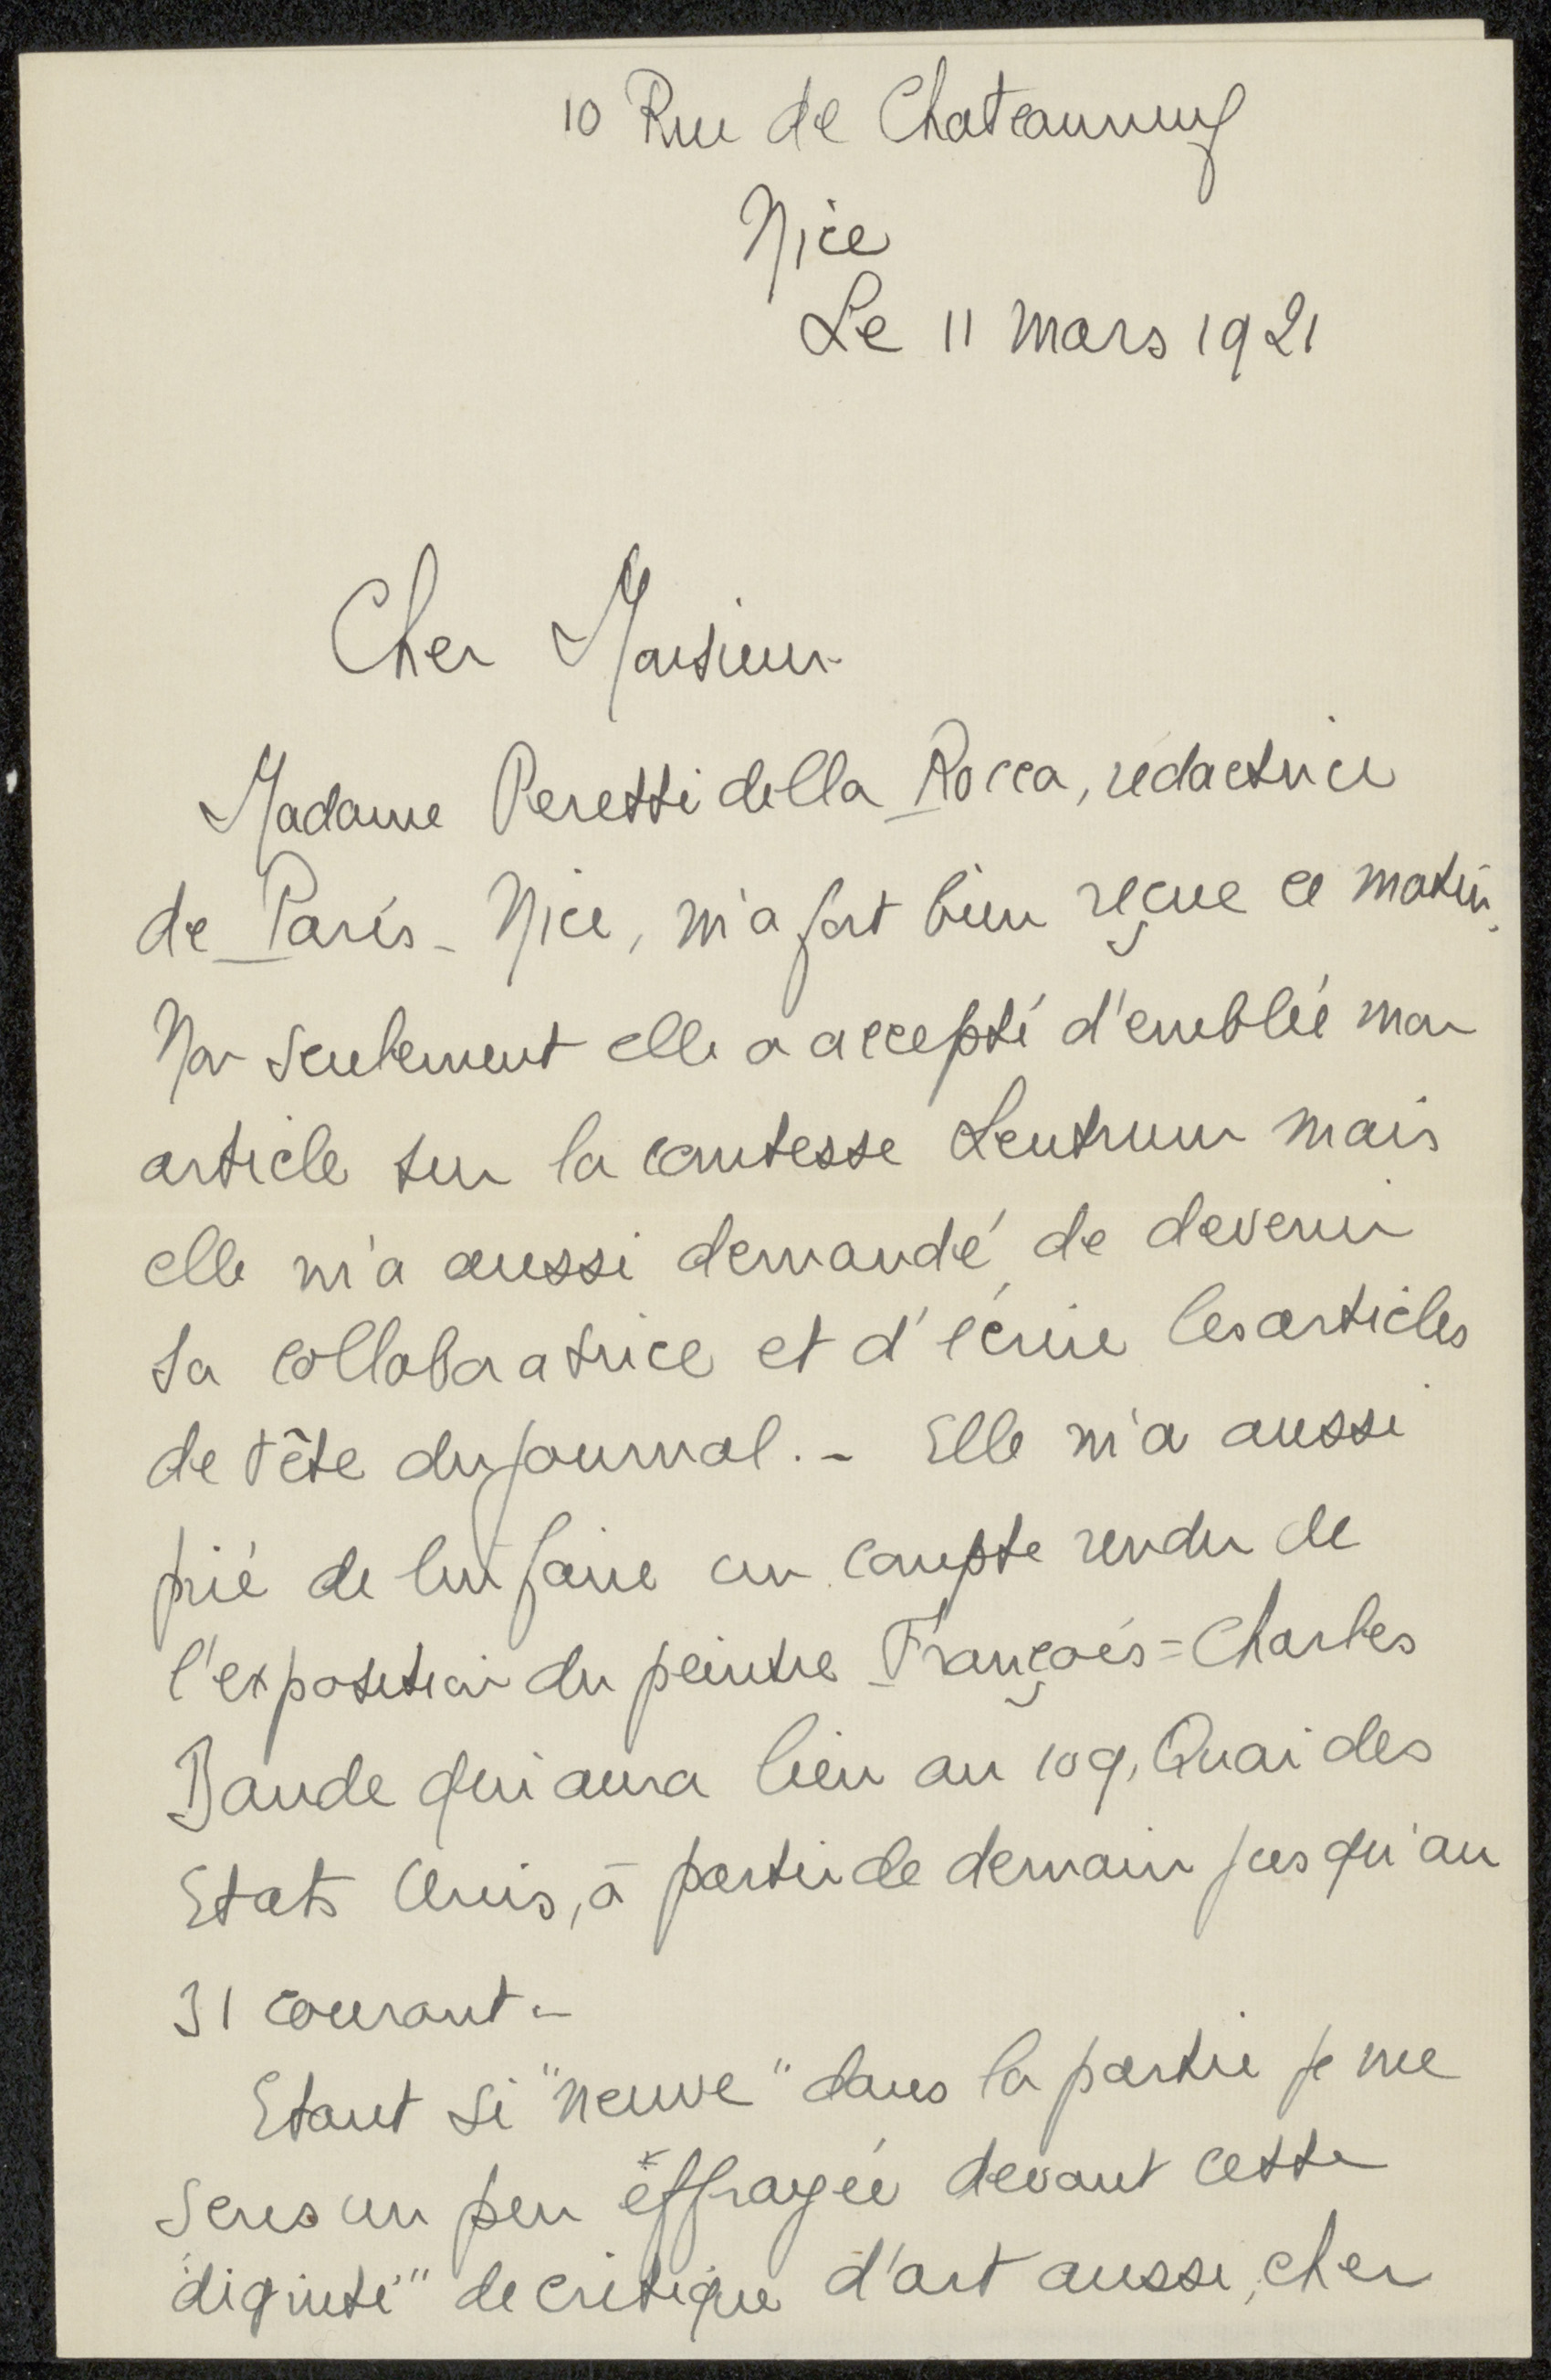 10 Rue de Chateauneuf
Nice
Le 11 mars 1921
Cher Monsieur
Madame Peretti della Rocca, rédactrice
de Paris - Nice, m'a fort bien reçue ce matin.
Non seulement elle a accepté d'emblée mon
article sur la comtesse Leutrum mais
elle m'a aussi demandé de devenir
sa collaboratrice et d'écrire les articles
de tête du journal. - Elle m'a aussi
prié de lui faire un compte rendu de
l'exposition du peintre François=Charles
Baude qui aura lieu au 109, Quai des
Etats Unis, à partir de demain jusqu'au
31 courant -
Etant si "neuve" dans la partie je me
sens un peu effrayée devant cette
"dignité" de critique d'art aussi, cher